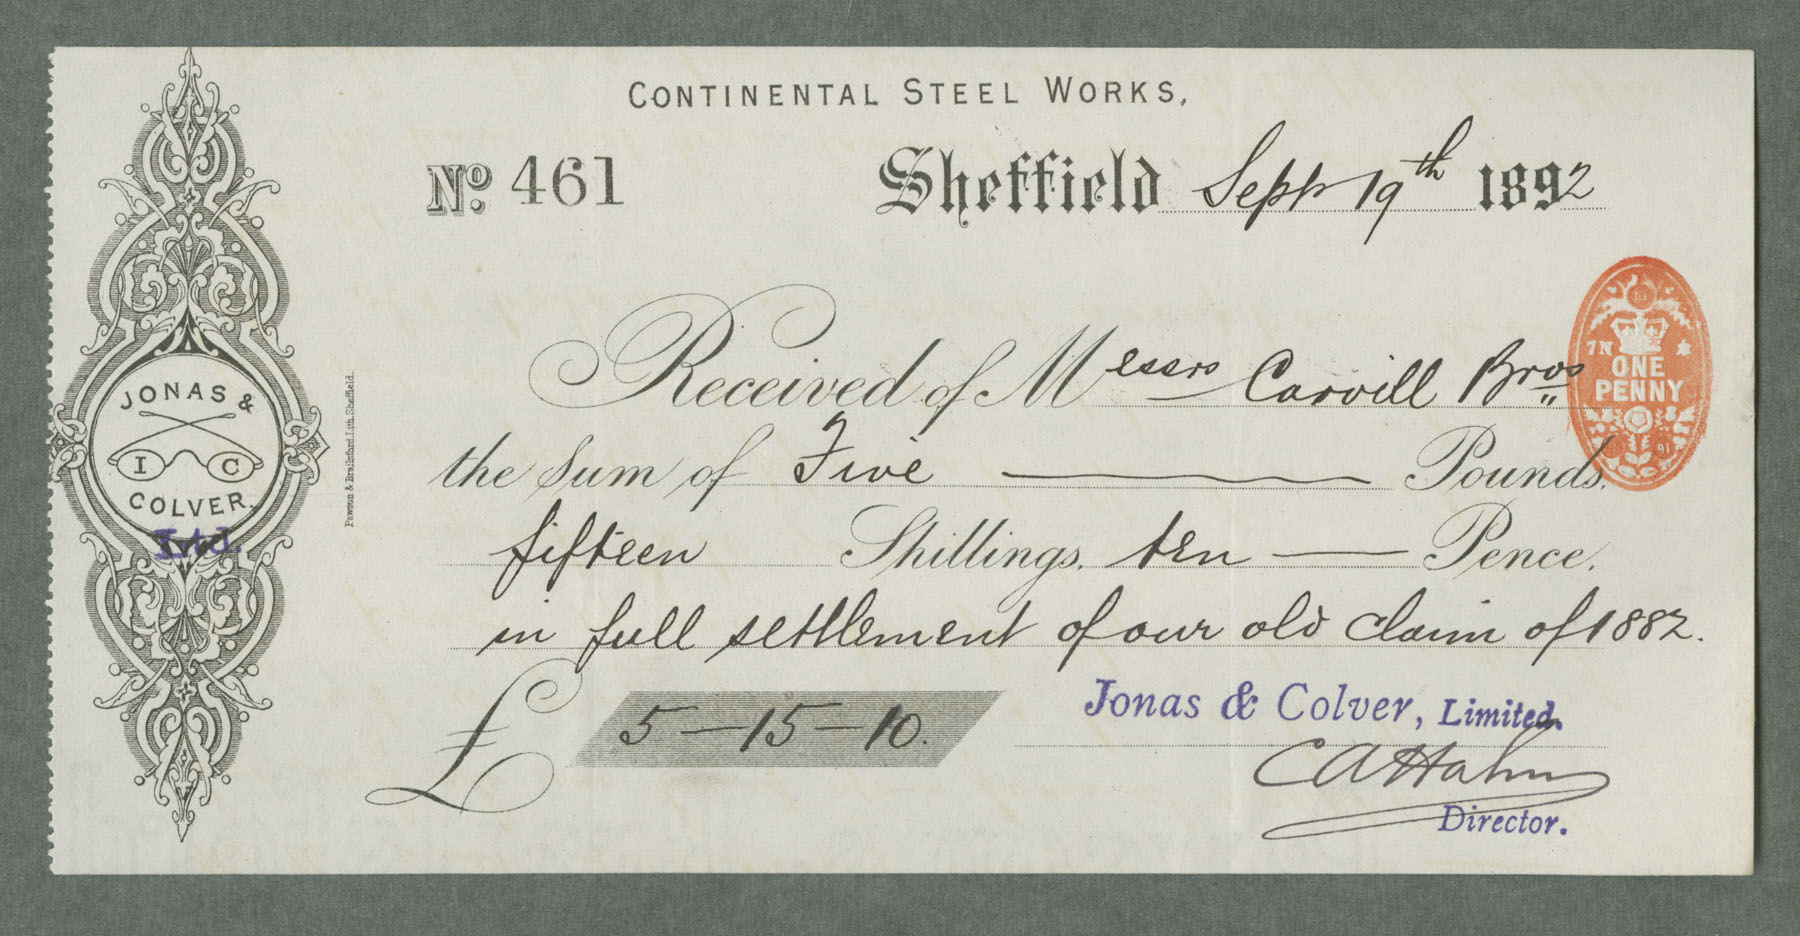 CONTINENTAL STEEL WORKS,
No. 461
Sheffield Sept 19th 1892
JONAS &
I C
COLVER.
Ltd.
Pawson & Brailsford Lith Sheffield.
Received of Messrs Carvill Bros
7 N
ONE
PENNY
91
the Sum of Five Pounds.
fifteen Shillings. ten Pence.
in full settlement of our old claim of 1882.
£ 5-15-10.
Jonas & Colver, Limited.
CA Hahn
Director.